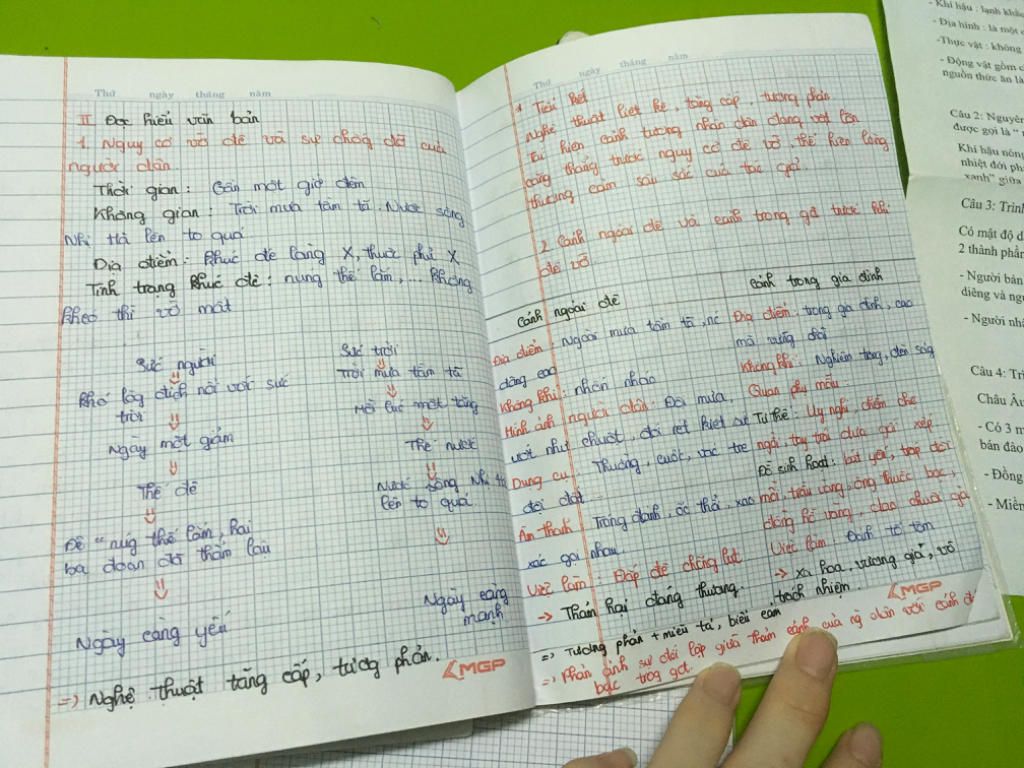 Thứ ngày tháng năm
II Đọc hiểu văn bản
1. Nguy cơ vỡ đê và sự chống đỡ của
người dân.
Thời gian: Gần một giờ đêm
Không gian: Trời mưa tầm tã. Nước sông
Nhị Hà lên to quá
Địa điểm: Khúc đê làng X, thuộc phủ X
Tình trạng khúc đê: núng thế lắm, ... không
khéo thì vỡ mất
Sức người
Sức trời
Khó lòng địch nổi với sức
trời
Trời mưa tầm tã
Ngày một giảm
Mỗi lúc một tăng
Thế đê
Thế nước
Đê "núg thế lắm, hai
ba đoạn đã thẩm lậu
Nước sông Nhị Hà
lên to quá
Ngày càng yếu
Ngày càng
mạnh
=> Nghệ thuật tăng cấp, tương phản.
MGP
Thứ ngày tháng năm
* Tiểu kết
Nghệ thuật liệt kê, tăng cấp, tương phản
thể hiện cảnh tượng nhân dân đang vật lộn
căng thẳng trước nguy cơ đê vỡ, thể hiện lòng
thương cảm sâu sắc của tác giả.
2 Cảnh ngoài đê và cảnh trong gđ trước khi
đê vỡ
Cảnh ngoài đê
Địa điểm Ngoài mưa tầm tã, nc
dâng cao
Không khí: nhốn nháo
Hình ảnh người dân: Đội mưa,
ướt như chuột, đói rét kiệt sức
Dụng cụ: Thuổng, cuốc, vác tre
đội đất
Âm thanh Trống đánh, ốc thổi, xao
xác gọi nhau.
Việc làm: Đắp đê chống lụt
-> Thảm hại đáng thương.
Cảnh trong gia đình
Địa điểm: trong gđ đình, cao
mà vững chãi
Không khí: Nghiêm trang, đèn sáng
Quan phụ mẫu:
Tư thế: Uy nghi, chễm chệ
ngồi, tay trái dựa gối xếp
Đồ sinh hoạt: bát yến, tráp đồi
mồi, trầu vàng, ống thuốc bạc,
đồng hồ vàng, dao chuôi ngà
Việc làm: Đánh tổ tôm
-> xa hoa, vương giả, vô
trách nhiệm.
MGP
=> Tương phản + miêu tả, biểu cảm
=> Phản ánh sự đối lập giữa thảm cảnh của ng dân với cảnh đ
bạc trog gđ.
- Khí hậu : lạnh khắc
- Địa hình : là một
-Thực vật : không
- Động vật gồm
nguồn thức ăn là
Câu 2: Nguyên
được gọi là "
Khí hậu nóng
nhiệt đới ph
xanh" giữa
Câu 3: Trình
Có mật độ d
2 thành phần
- Người bản
diêng và ng
- Người nh
Câu 4: Tr
Châu Âu
- Có 3 m
bán đảo
- Đồng
- Miền